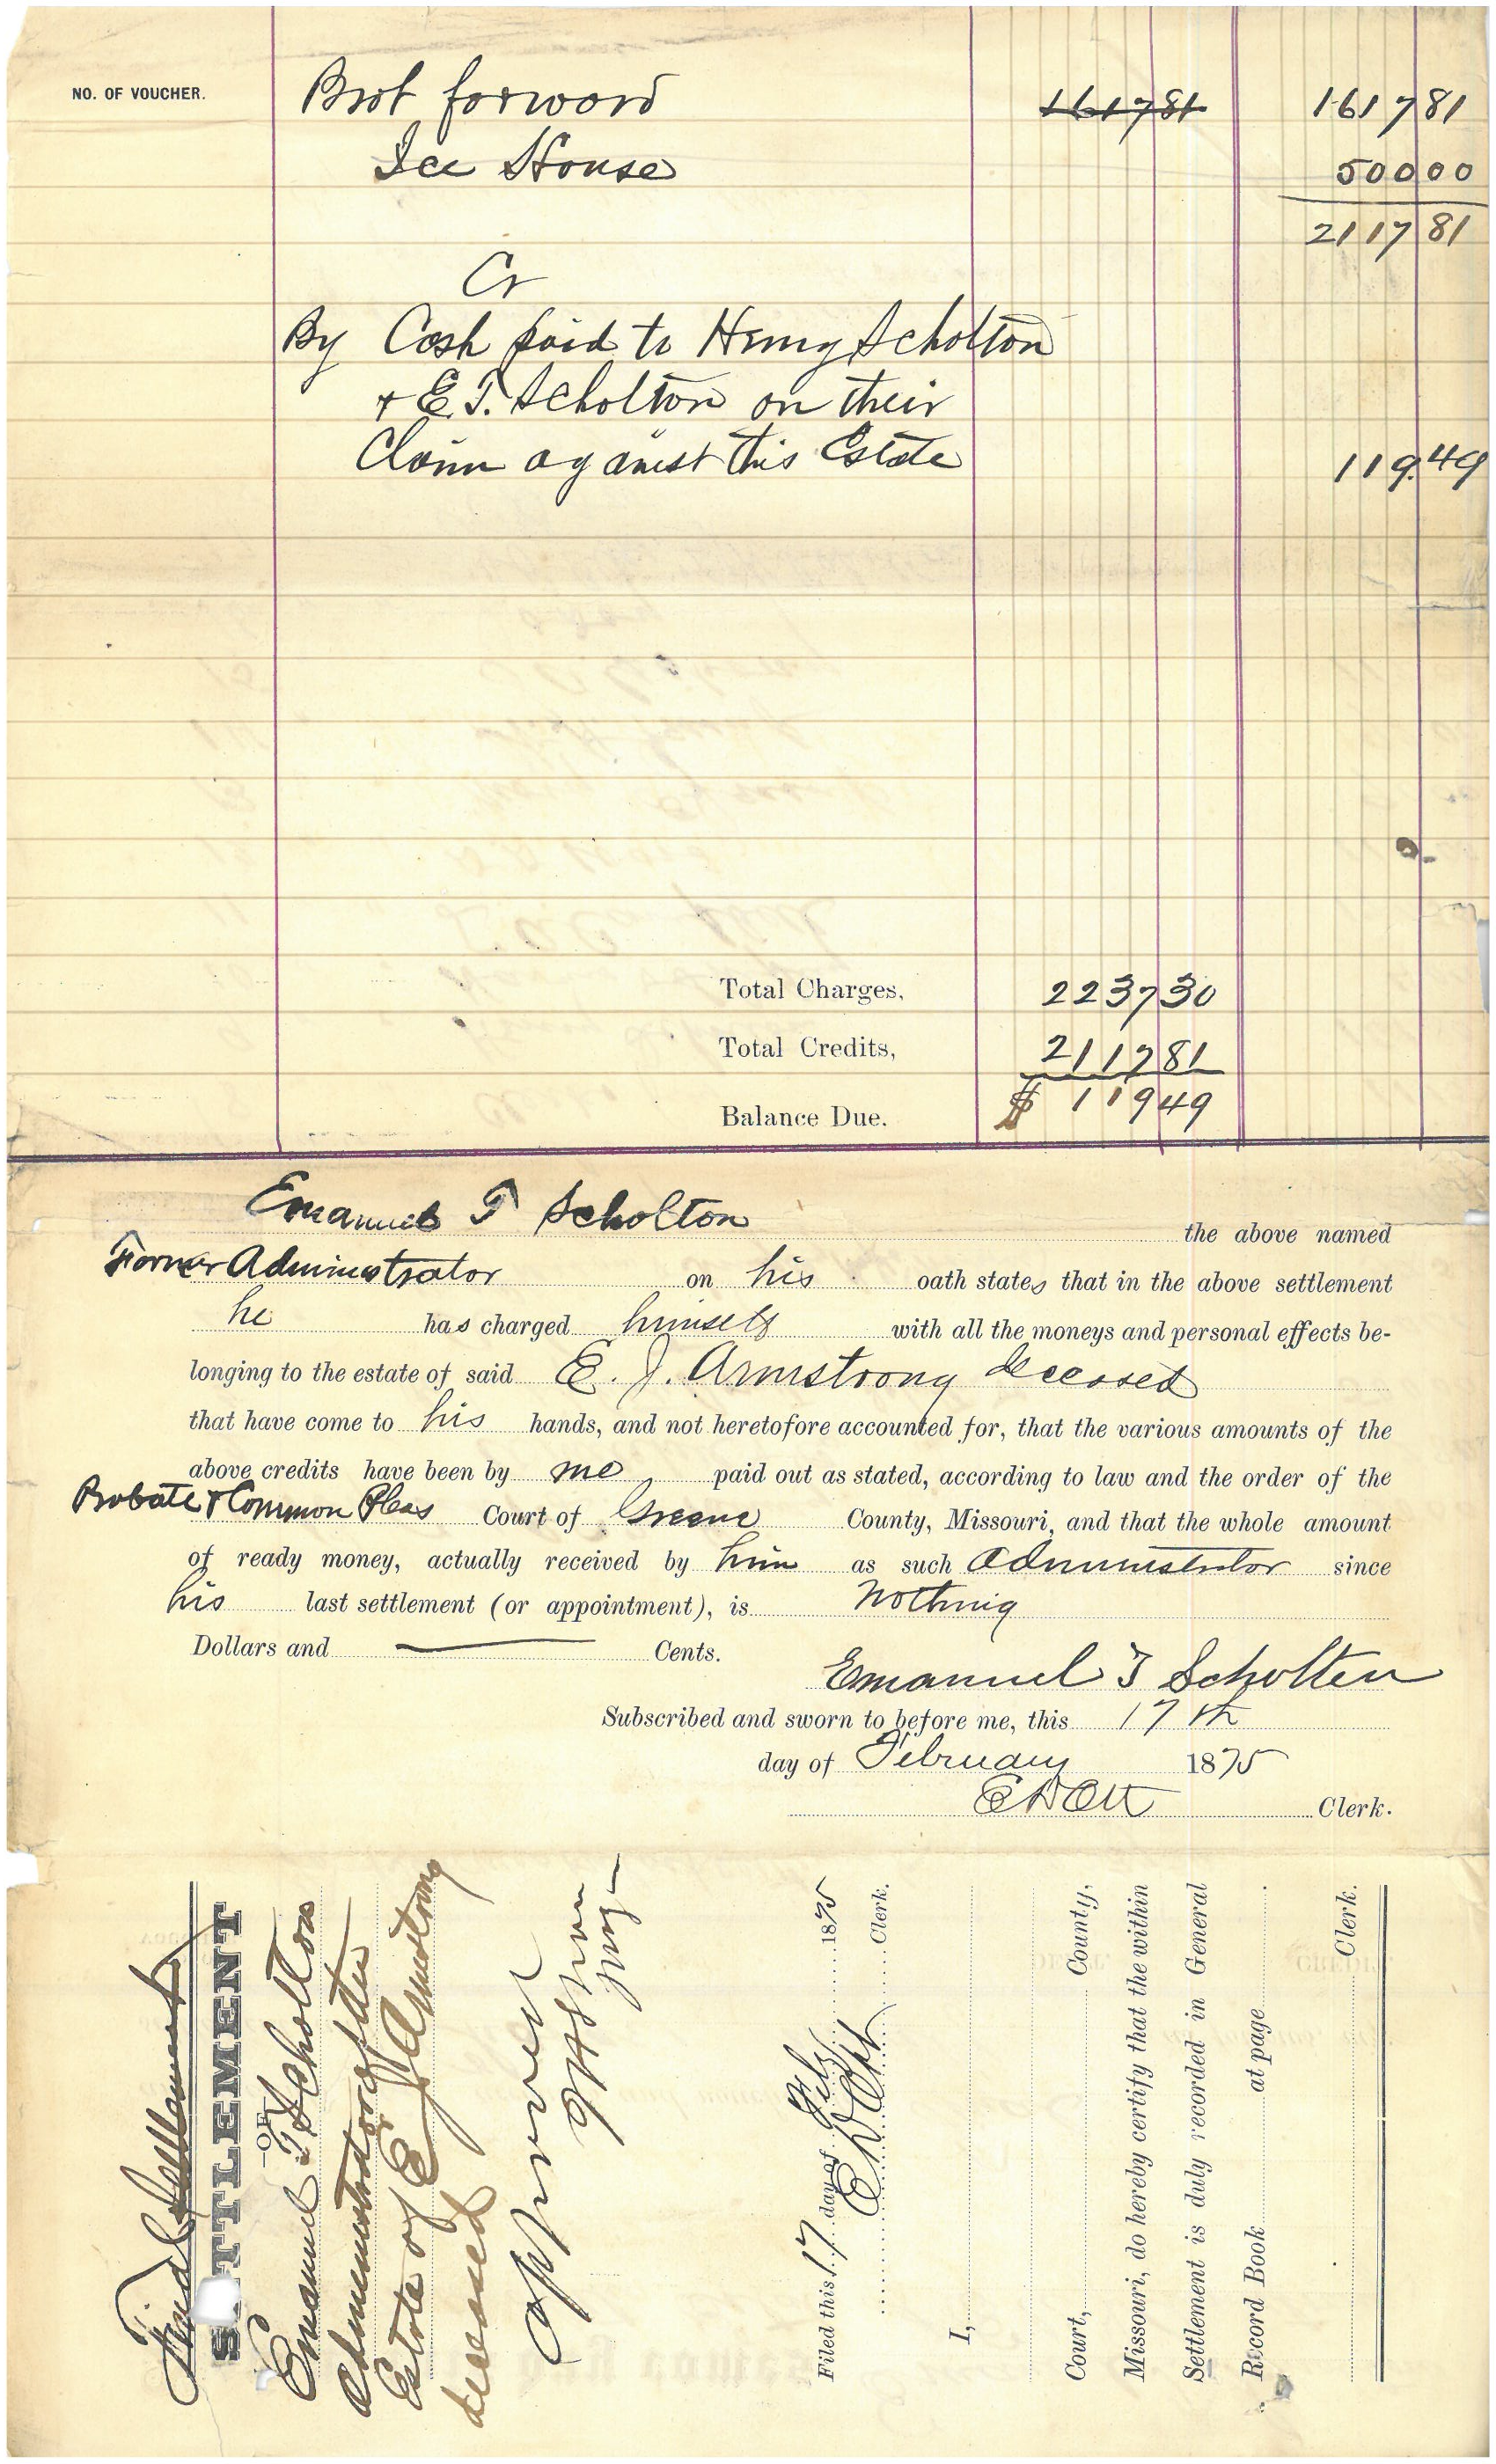 NO. OF VOUCHER. Brot forword 161781 161781
Ice House 50000
211781
Cr
By Cash paid to Henry Scholton
+ E. T. Scholton on their
Claim against this Estate 119.49
Total Charges, 223730
Total Credits, 211781
Balance Due. $ 11949
Emanuel T Scholton the above named
Former Administrator on his oath states that in the above settlement
he has charged himself with all the moneys and personal effects be-
longing to the estate of said E. J. Armstrong deceased
that have come to his hands, and not heretofore accounted for, that the various amounts of the
above credits have been by me paid out as stated, according to law and the order of the
Probate & Common Pleas Court of Greene County, Missouri, and that the whole amount
of ready money, actually received by him as such Administrator since
his last settlement (or appointment), is Nothing
Dollars and — Cents.
Emanuel T Scholten
Subscribed and sworn to before me, this 17th
day of February 1875
E D Ott Clerk.
Final Settlement
SETTLEMENT
OF
Emanuel T Scholton
Administrator of the
Estate of E J Armstrong
deceased
Approved
Filed this 17 day of Feby 1875
E D Ott Clerk.
I,
Court, County,
Missouri, do hereby certify that the within
Settlement is duly recorded in General
Record Book at page .
Clerk.